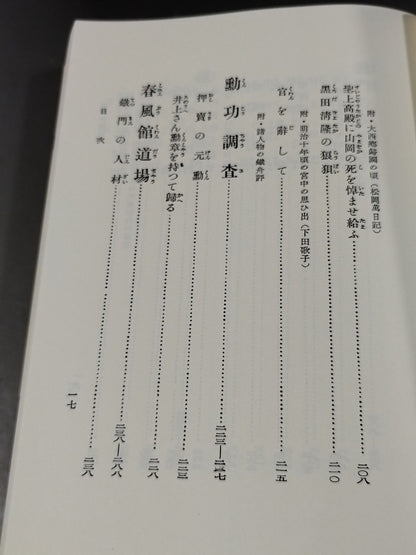 附・大西郷歸國の頃(松岡萬日記)
聖上高殿に山岡の死を悼ませ給ふ……二〇八
黒田清隆の狼狽……二一〇
附・明治十年頃の宮中の思ひ出(下田歌子)
官を辭して……二一五
附・諸人物の鐵舟評
勳功調査……二二三―二三七
押賣の元勳……二二三
井上さん勳章を持つて歸る……二二八
春風館道場……二三八―二八八
鐵門の人材……二三八
目次
一七